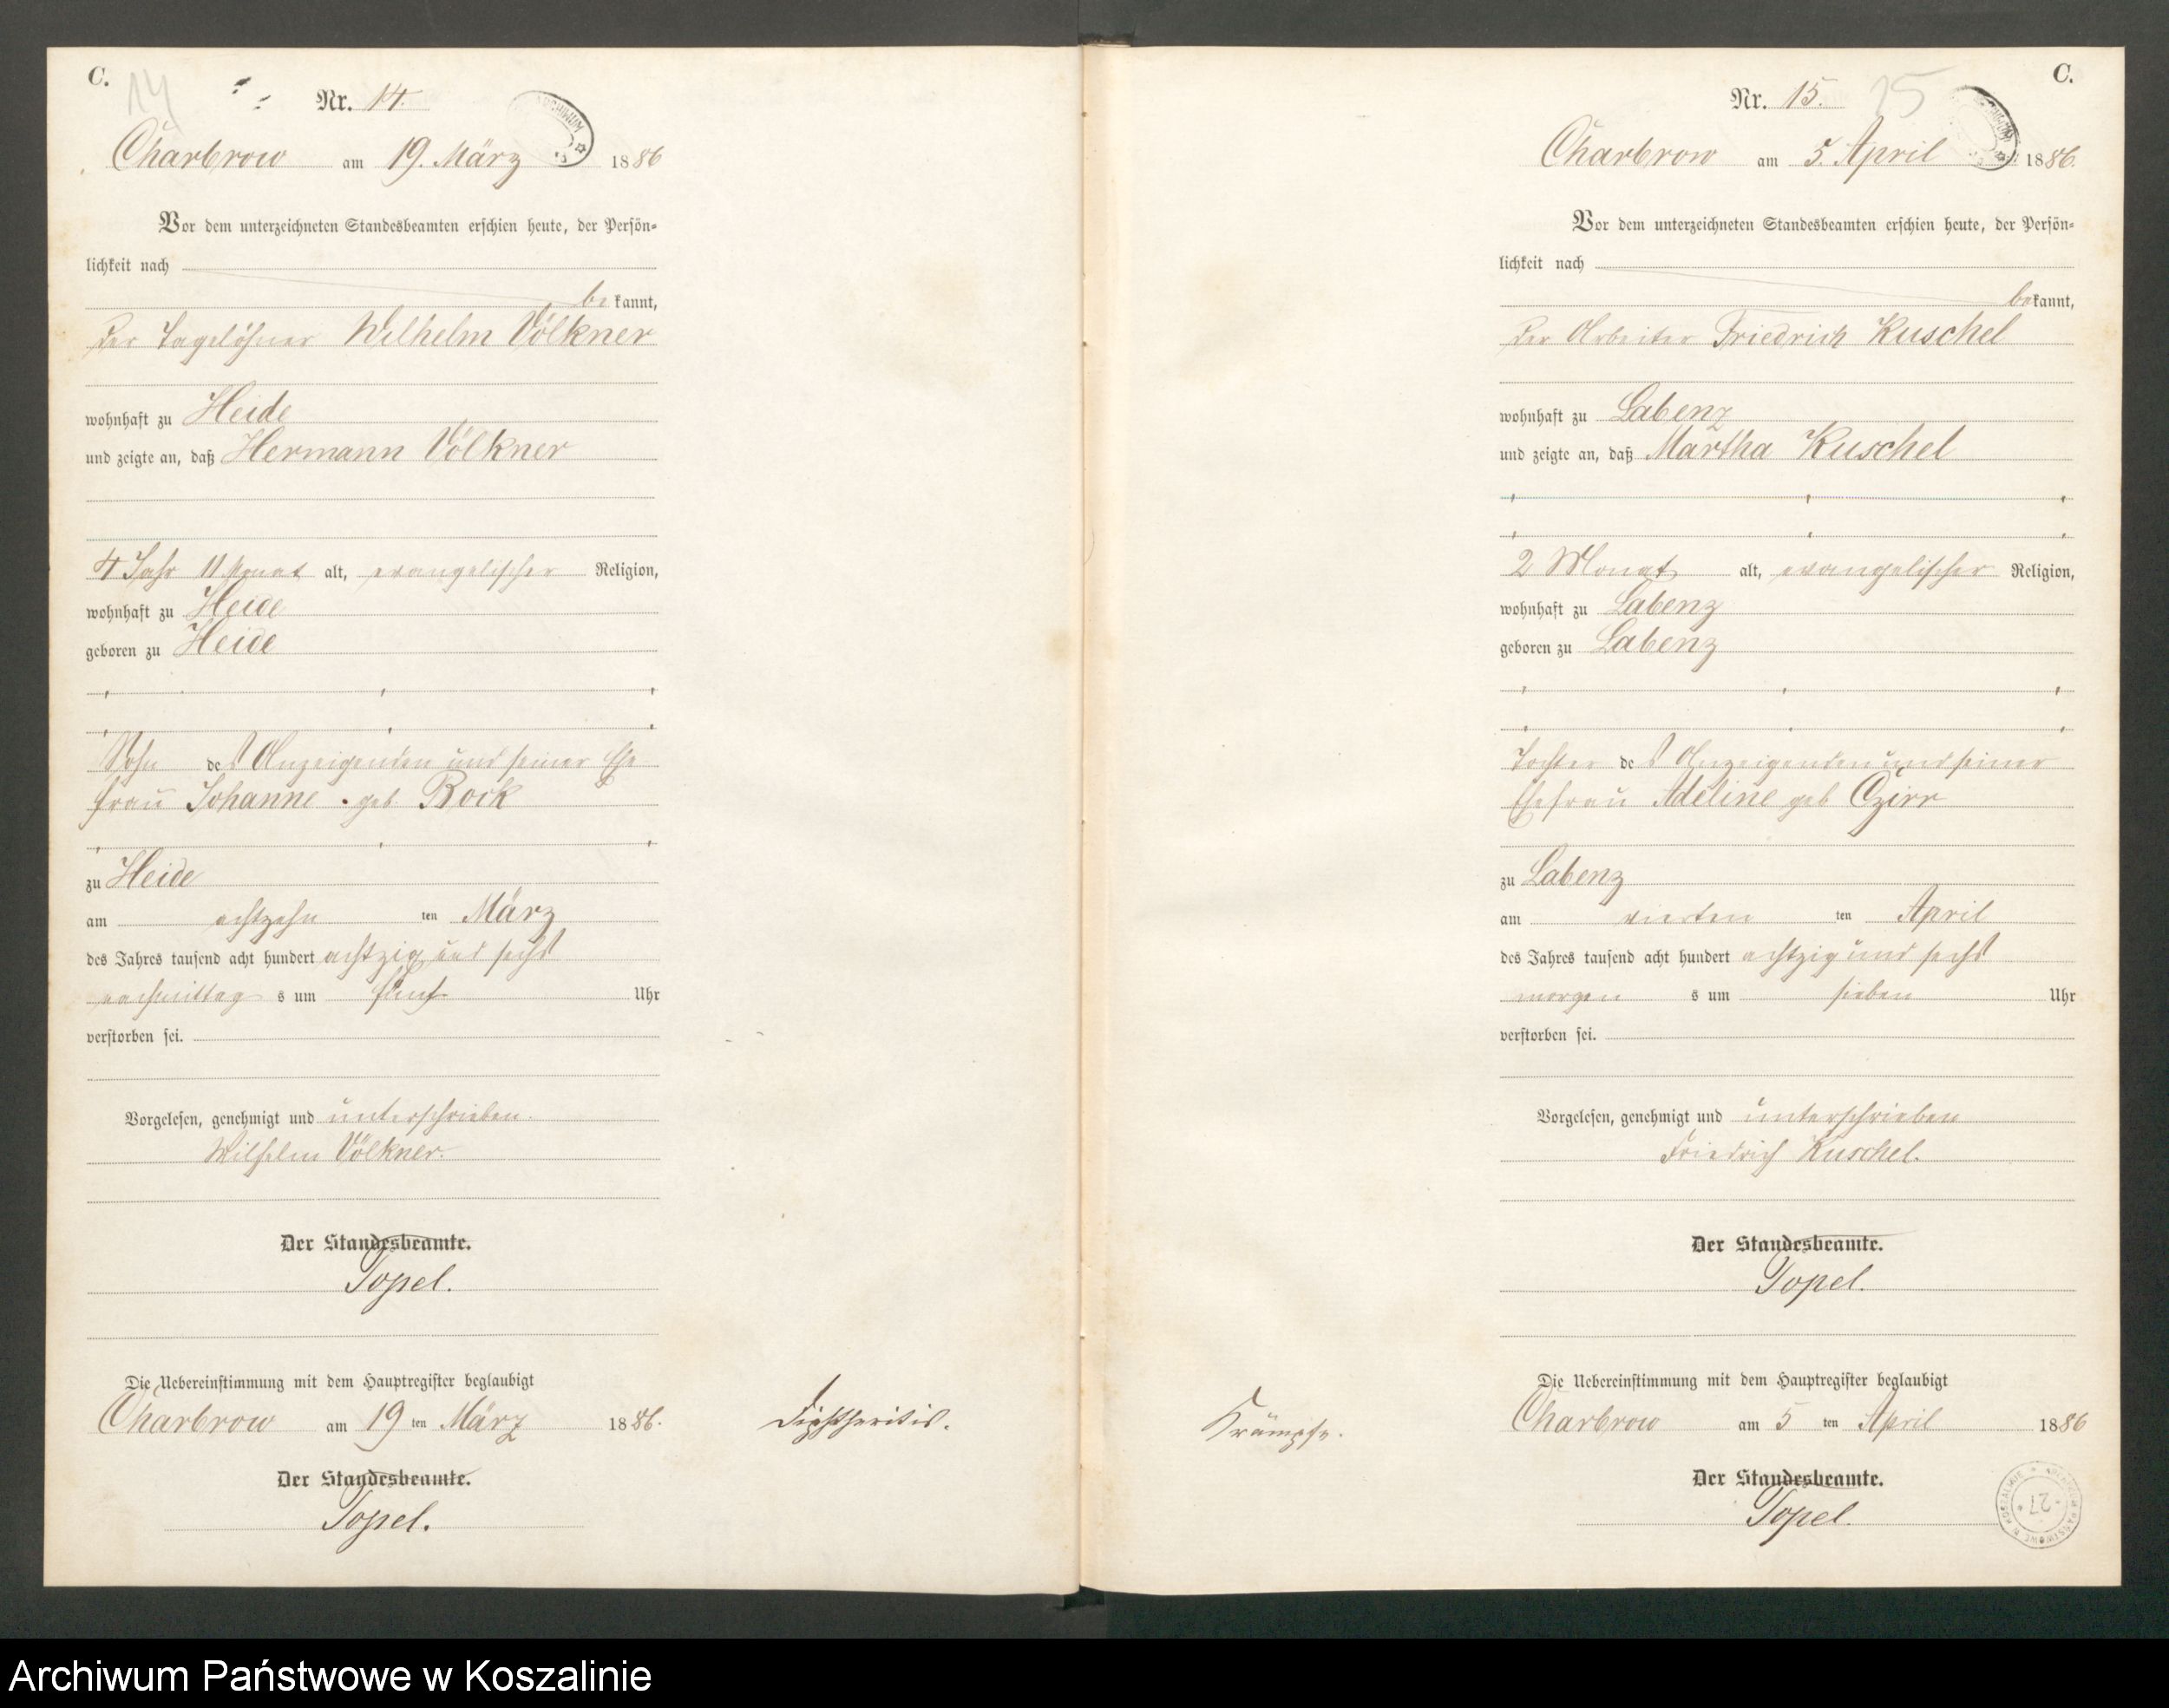 C.
14
Nr. 14.
Charbrow am 19. März 1886
Vor dem unterzeichneten Standesbeamten erschien heute, der Persön-
lichkeit nach
be kannt,
der Tagelöhner Wilhelm Völkner
wohnhaft zu Heide
und zeigte an, daß Hermann Völkner
4 Jahr 11 Monat alt, evangelischer Religion,
wohnhaft zu Heide
geboren zu Heide
Sohn des Anzeigenden und seiner Ehe
frau Johanne geb. Bock
zu Heide
am achtzehn ten März
des Jahres tausend acht hundert achtzig und sechs
nachmittag s um fünf Uhr
verstorben sei.
Vorgelesen, genehmigt und unterschrieben.
Wilhelm Völkner.
Der Standesbeamte.
Topel.
Die Uebereinstimmung mit dem Hauptregister beglaubigt
Charbrow am 19 ten März 1886.
Der Standesbeamte.
Topel.
Diphtheritis.
C.
15
Nr. 15.
Charbrow am 5. April 1886.
Vor dem unterzeichneten Standesbeamten erschien heute, der Persön-
lichkeit nach
bekannt,
der Arbeiter Friedrich Kuschel
wohnhaft zu Labenz
und zeigte an, daß Martha Kuschel
2 Monat alt, evangelischer Religion,
wohnhaft zu Labenz
geboren zu Labenz
Tochter des Anzeigenden und seiner
Ehefrau Adeline geb Czirr
zu Labenz
am vierten ten April
des Jahres tausend acht hundert achtzig und sechs
morgen s um sieben Uhr
verstorben sei.
Vorgelesen, genehmigt und unterschrieben
Friedrich Kuschel.
Der Standesbeamte.
Topel.
Die Uebereinstimmung mit dem Hauptregister beglaubigt
Charbrow am 5 ten April 1886
Der Standesbeamte.
Topel.
Krämpfe.
27
Archiwum Państwowe w Koszalinie